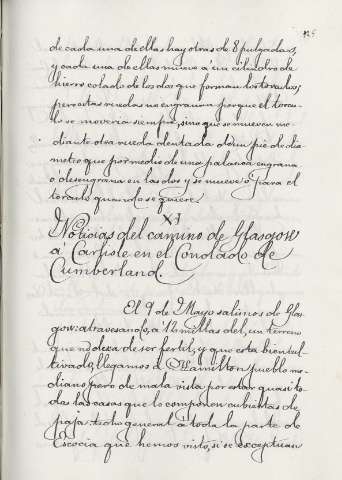 125
de cada una de ellas hay otras de 8 pulgadas,
y cada una de ellas mueve á un cilindro de
hierro colado de los dos que forman los torculos,
pero estas ruedas no engranan porque el torcu-
lo se moveria siempre, sino que se mueven me-
diante otra rueda dentada de un pie de dia-
metro que por medio de una palanca engrana
o desengrana en las dos y se mueve o para el
torculo quando se quiere.
XI
Noticias del camino de Glasgow
á Carlisle en el Condado de
Cumberland.
El 9 de Mayo salimos de Glas-
gow: atravesando, a 12 millas del, un terreno
que no dexa de ser fertil, y que esta bien cul-
tivado, llegamos a Hamilton pueblo me-
diano pero de mala vista por estar quasi to-
das las casas que lo componen cubiertas de
paja: techo general a toda la parte de
Escocia que hemos visto, si se exceptuan